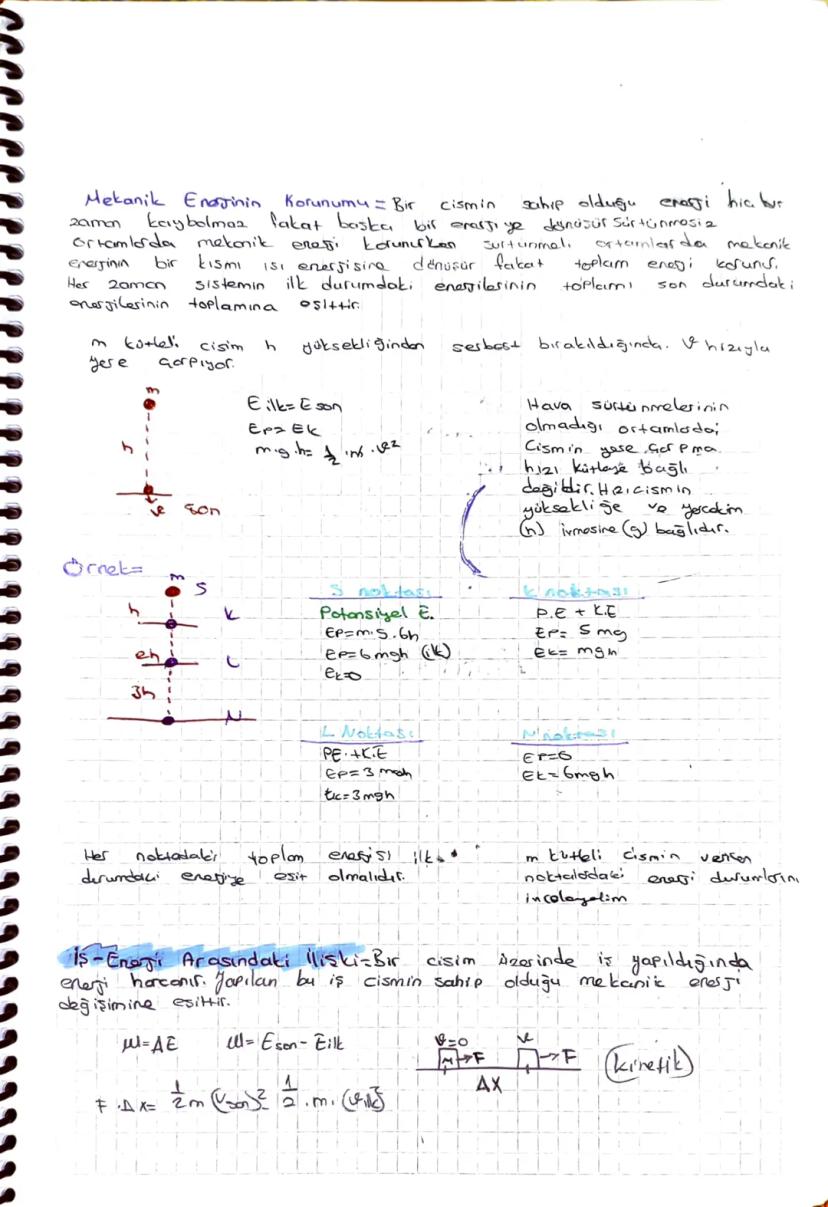 Mekanik Enerjinin Korunumu = Bir cismin sahip olduğu enerji hiç bir
zaman kaybolmaz fakat başka bir enerjiye dönüşür Sürtünmesiz
ortamlarda mekanik enerji korunurken sürtünmeli ortamlarda mekanik
Enerjinin bir kısmı ısı enerjisine dönüşür fakat toplam enerji korunur.
Her zaman sistemin ilk durumdaki enerjilerinin toplamı son durumdaki
enerjilerinin toplamına eşittir.
m kütleli cisim h yüksekliğinden serbest bırakıldığında. v hızıyla
yere çarpıyor.
m
h
v son
E ilk = E son
Ep = Ek
m.g.h = 1/2 .m .v²
Hava sürtünmelerinin
olmadığı ortamlarda;
Cismin yere çarpma
hızı kütleye bağlı
değildir. Hız cismin
yüksekliğe ve yerçekim
(h) ivmesine (g) bağlıdır.
Örnek=
m S
h K
2h L
3h N
S noktası
Potansiyel E.
Ep=m.g.6h
Ep=6mgh (ilk)
Ek=0
K noktası
P.E + K.E
Ep= 5mg
Ek= mgh
L Noktası
PE.+K.E
Ep=3mgh
Ek=3mgh
N noktası
Ep=0
Ek=6mgh
Her noktadaki toplam enerjisi ilk
durumdaki enerjiye eşit olmalıdır.
m kütleli cismin verilen
noktalardaki enerji durumlarını
inceleyelim
İş-Enerji Arasındaki İlişki= Bir cisim üzerinde iş yapıldığında
enerji harcanır. Yapılan bu iş cismin sahip olduğu mekanik enerji
değişimine eşittir.
W=ΔE W= Eson - Eilk
v=0 v
M→F →F
ΔX
(kinetik)
F.Δx= 1/2 m (Vson)² - 1/2 .m. (vilk)²